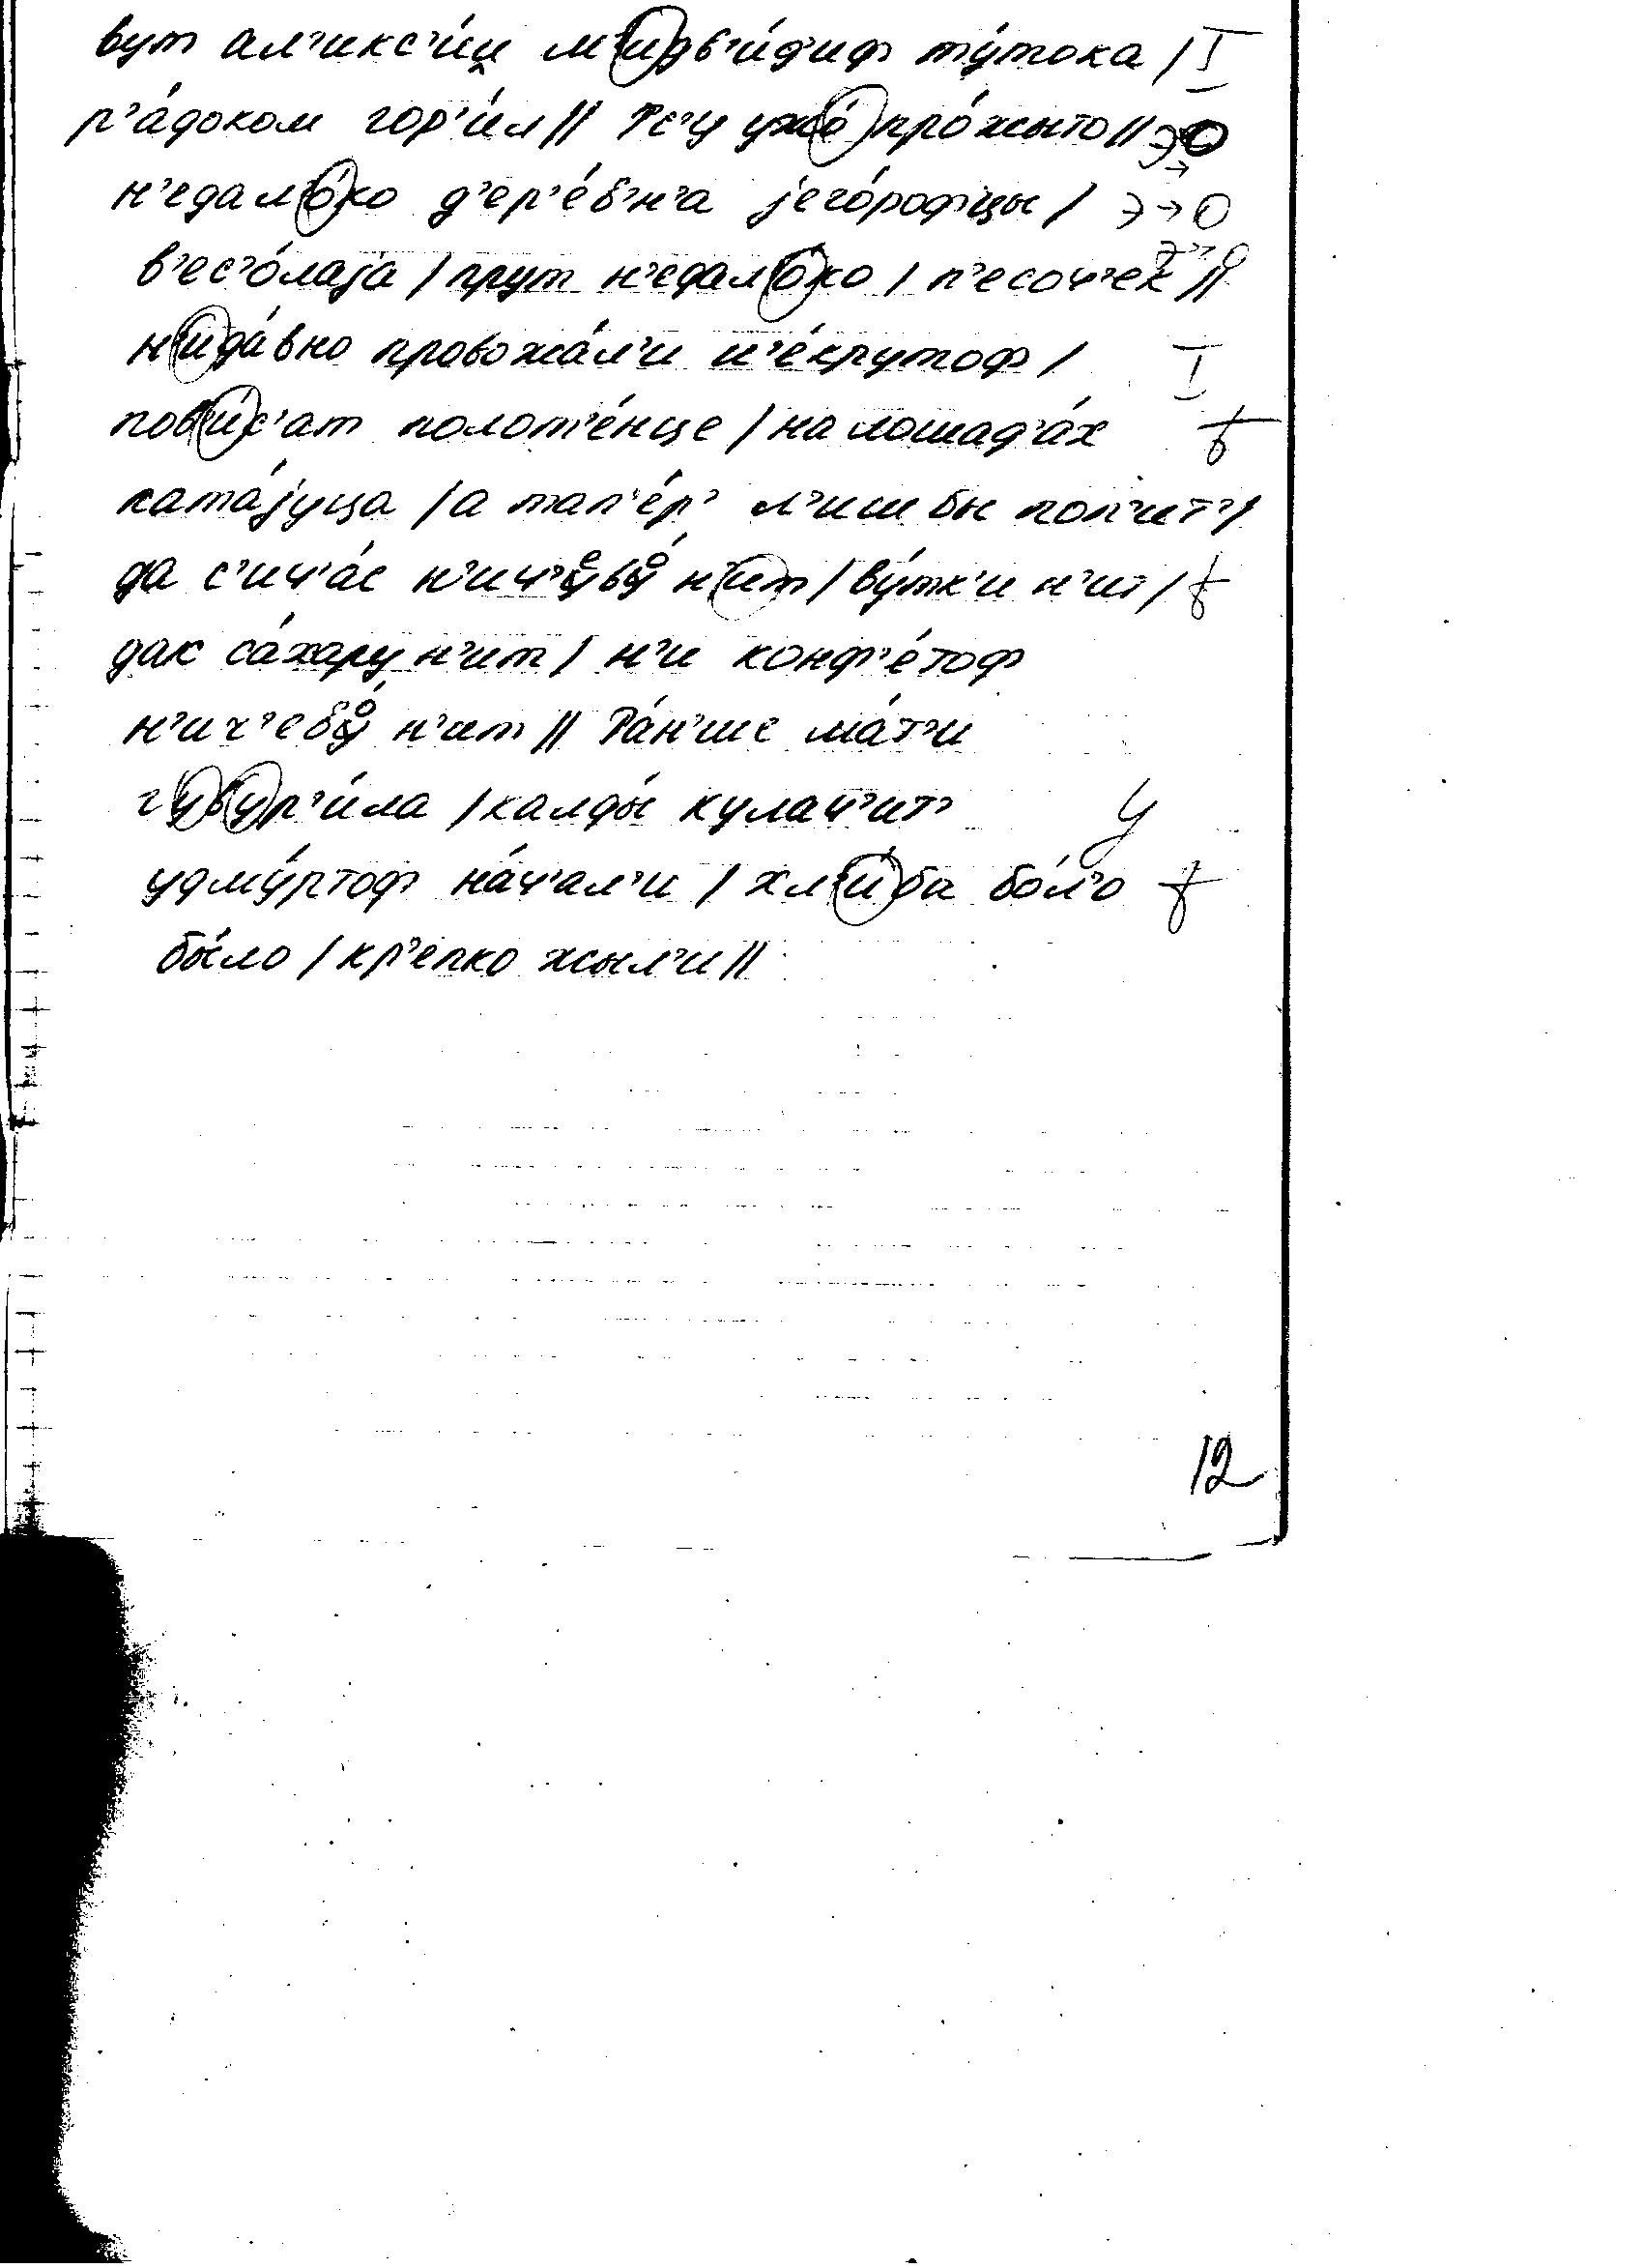 вут ал’икс’и́й м’идв’и́д’иф ту́тока / I
р’а́доком гор’и́л // Т’с’у ужо́ про́жыто // э→о
н’едало́ко д’ер’е́в’н’а jего́рофцы / э→о
в’ес’о́лаjа / прут н’едало́ко / п’есоч’ек // э→о
н’ида́вно провожа́л’и н’е́крутоф / I
пов’и́с’ат полот’е́нце / на лошад’а́х ѣ
ката́jуца / а тап’е́р’ л’иш бы поп’ит’ /
да с’ич’а́с н’ич’ово́ н’ит / ву́тк’и н’ит / ѣ
дак са́хару н’ит / н’и конф’е́тоф
н’ич’ево́ н’ит // Ра́н’ше ма́т’и
гувур’и́ла / калды́ кулач’ит’ у
удму́ртоф на́ч’ал’и / хл’и́ба бо́л’о ѣ
бы́ло / кр’епко жыл’и //
12